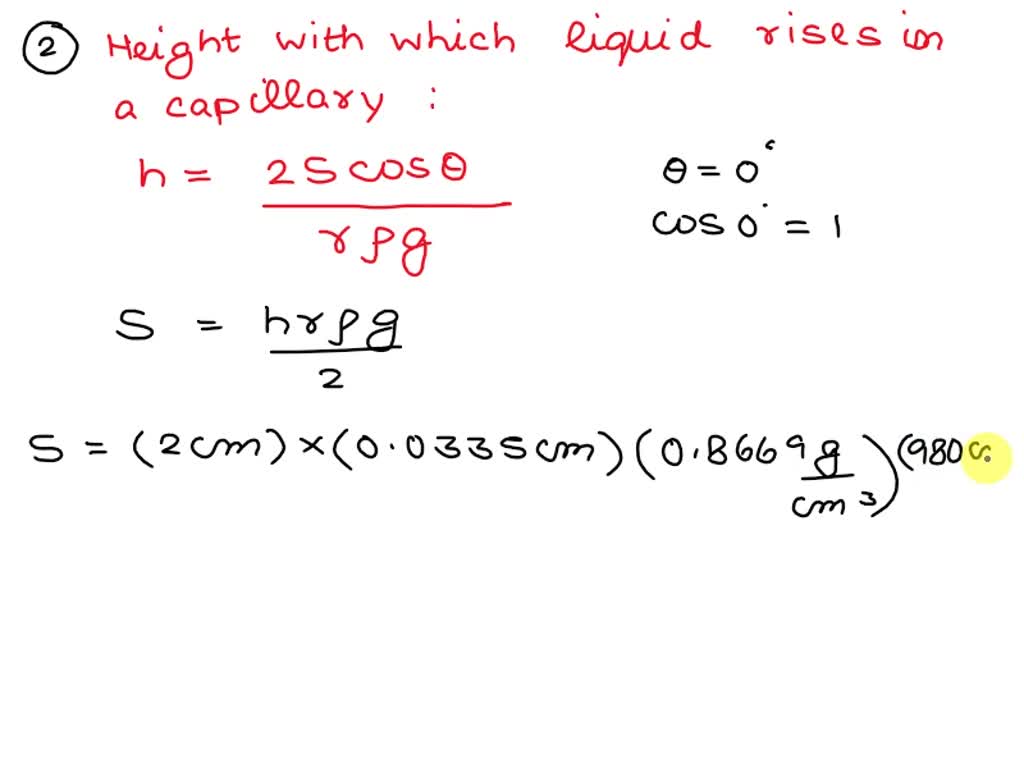 ② Height with which liquid rises in
a capillary :
h = 2 S cos θ / r ρ g
θ = 0°
cos 0° = 1
S = h r ρ g / 2
S = (2 cm) × (0.0335 cm) (0.8669 g / cm³) (980 c